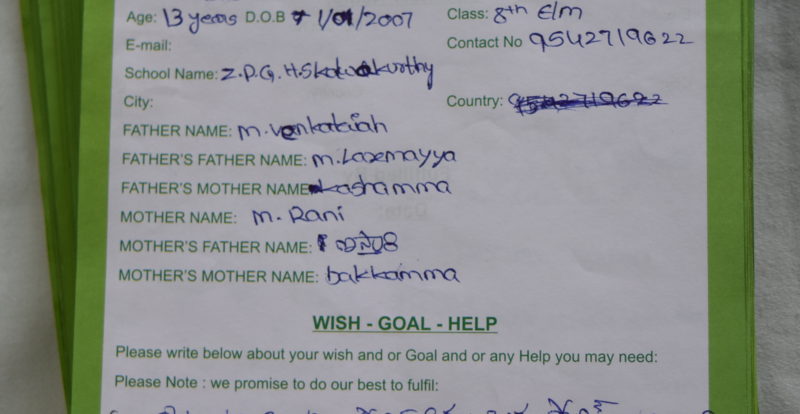 Age: 13 years D.O.B 1/01/2007 Class: 8th E/m
E-mail: Contact No 9542719622
School Name: Z.P.G.H.S kalwakurthy
City: Country: 9542719622
FATHER NAME: M. Venkataiah
FATHER'S FATHER NAME: M. Laxmayya
FATHER'S MOTHER NAME kashamma
MOTHER NAME: M. Rani
MOTHER'S FATHER NAME:
MOTHER'S MOTHER NAME: bakkamma
WISH - GOAL - HELP
Please write below about your wish and or Goal and or any Help you may need:
Please Note : we promise to do our best to fulfil: